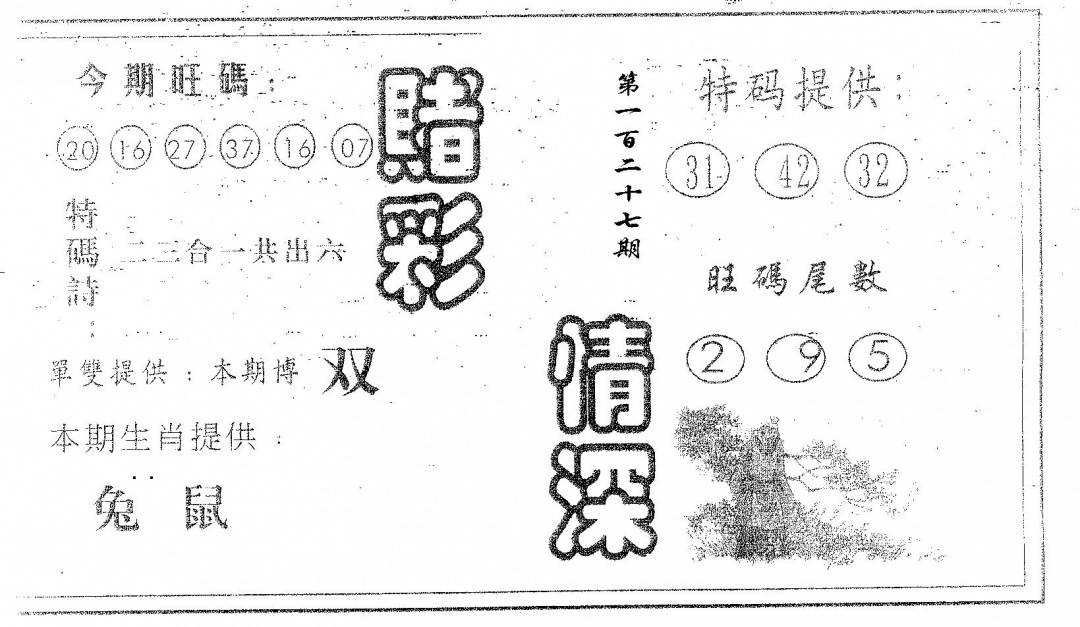 今期旺碼：
20 16 27 37 16 07
特碼詩：
二三合一共出六
單雙提供：本期博 双
本期生肖提供：
兔 鼠
賭彩
情深
第一百二十七期
特码提供：
31 42 32
旺碼尾數
2 9 5